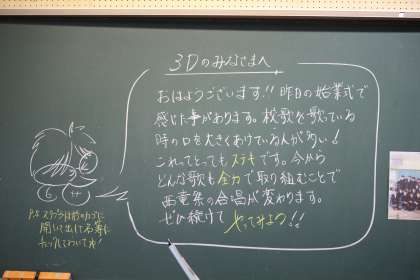 3Dのみなさまへ
おはようございます!! 昨日の始業式で
感じた事があります。校歌を歌っている
時の口を大きくあけている人が多い!
これってとってもステキです。今から
どんな歌も全力で取り組むことで
西竜祭の合唱が変わります。
ぜひ続けて やってみよう!!
P.S
開いて出して名簿に